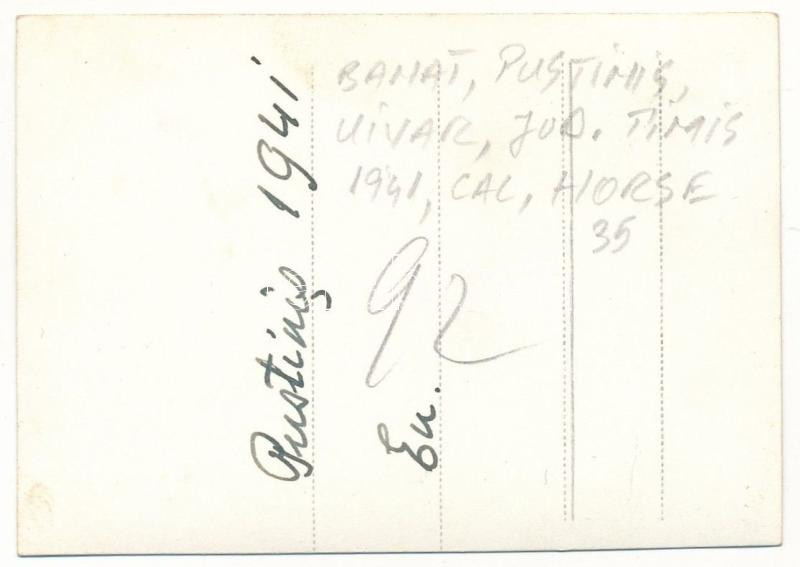 BANAT, PUSTINIȘ,
UIVAR, JUD. TIMIS
1941, CAL, HORSE
35
92
Pustiniș 1941
Eu.